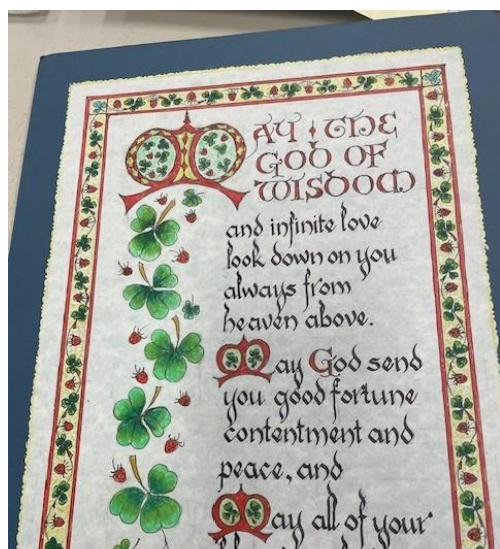 MAY THE
GOD OF
WISDOM
and infinite love
look down on you
always from
heaven above.
May God send
you good fortune
contentment and
peace, and
May all of your